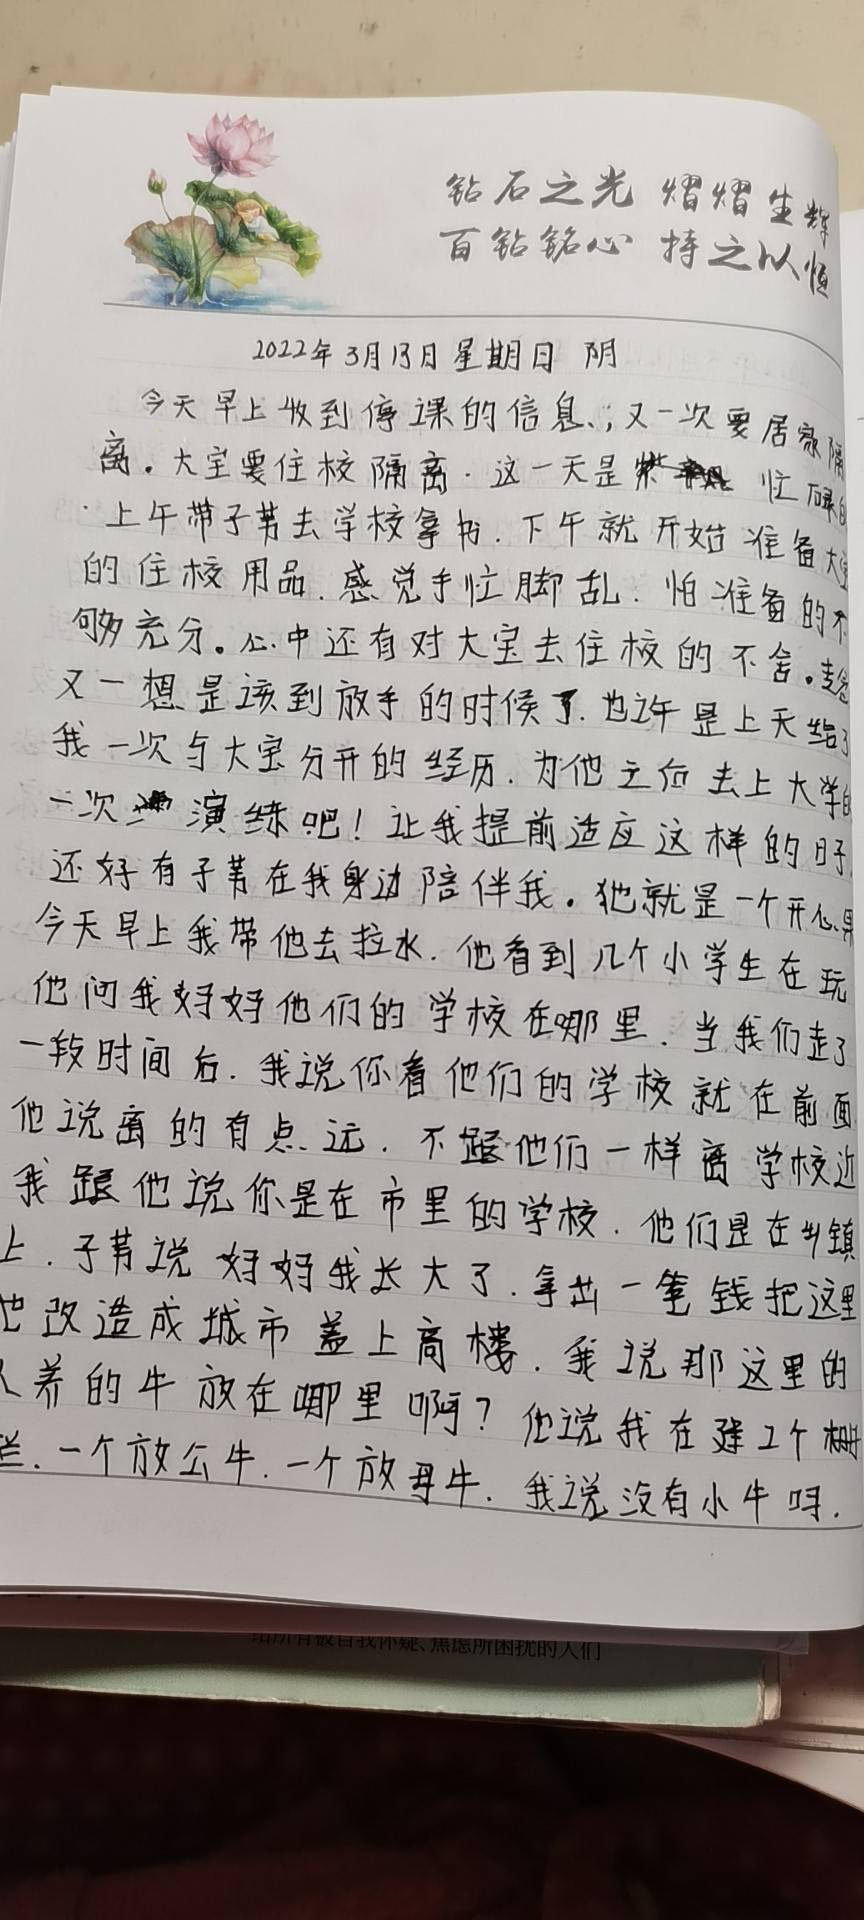 钻石之光 熠熠生辉
百钻铭心 持之以恒
2022年3月13日星期日 阴
今天早上收到停课的信息、；又一次要居家隔
离。大宝要住校隔离．这一天是 忙碌的
．上午带子芳去学校拿书．下午就开始准备大宝
的住校用品．感觉手忙脚乱．怕准备的不
够充分。心中还有对大宝去住校的不舍。
又一想是该到放手的时候了．也许是上天给了
我一次与大宝分开的经历．为他之后去上大学的
一次 演练吧！让我提前适应这样的日子．
还好有子芳在我身边陪伴我。他就是一个开心果
今天早上我带他去拉水．他看到几个小学生在玩
他问我妈妈他们的学校在哪里．当我们走了
一段时间后．我说你看他们的学校就在前面
他说离的有点远．不跟他们一样离学校近
我跟他说你是在市里的学校．他们是在乡镇
上．子芳说妈妈我长大了．拿出一笔钱把这里
也改造成城市盖上高楼．我说那这里的
人养的牛放在哪里啊？他说我在建2个栅
栏．一个放公牛．一个放母牛．我说没有小牛吗．
给所有被自我怀疑、焦虑所困扰的人们